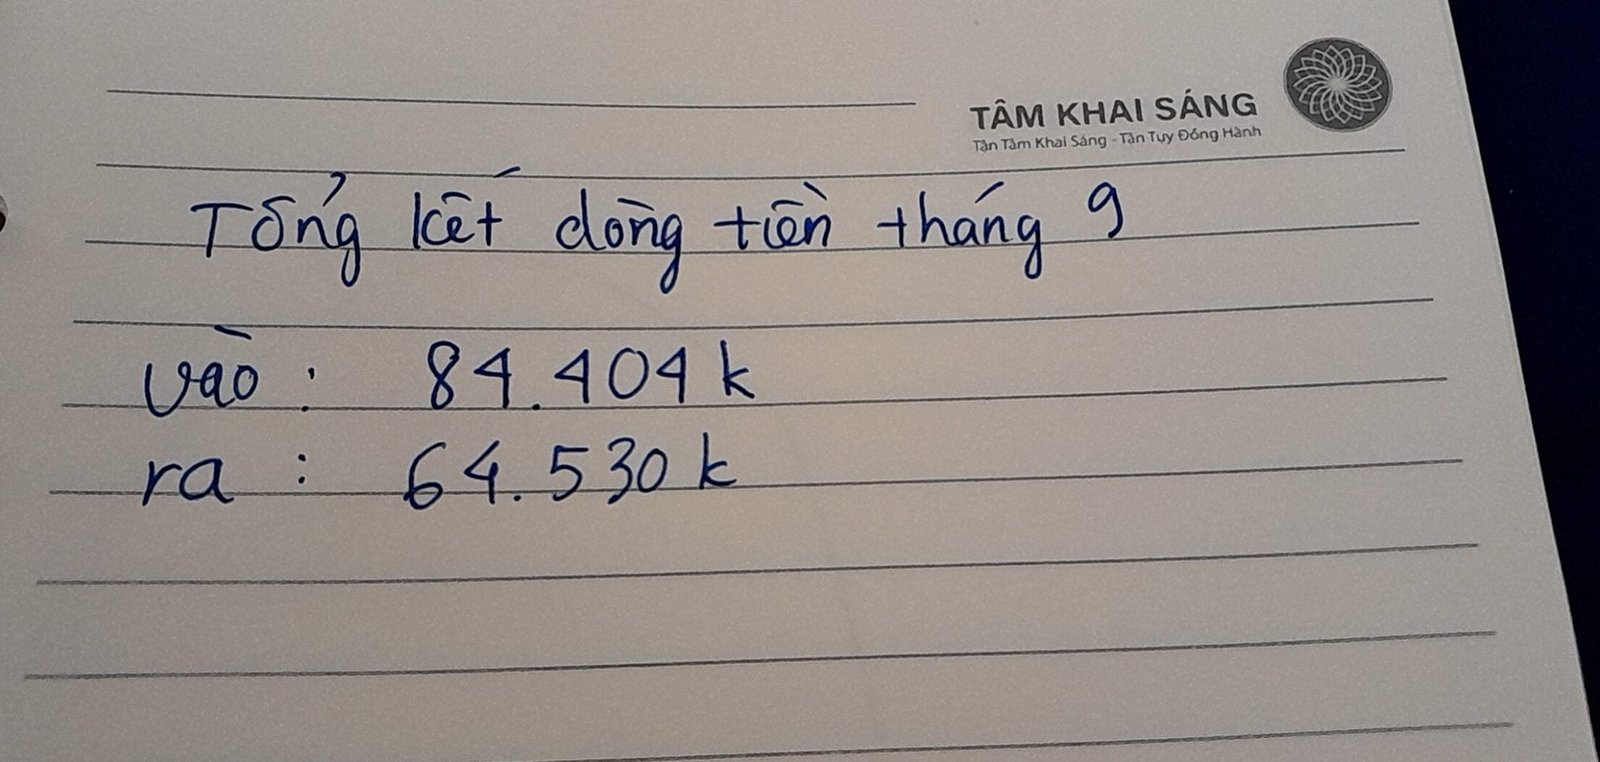 TÂM KHAI SÁNG
Tận Tâm Khai Sáng - Tận Tụy Đồng Hành
Tổng kết dòng tiền tháng 9
vào : 84.404 k
ra : 64.530 k